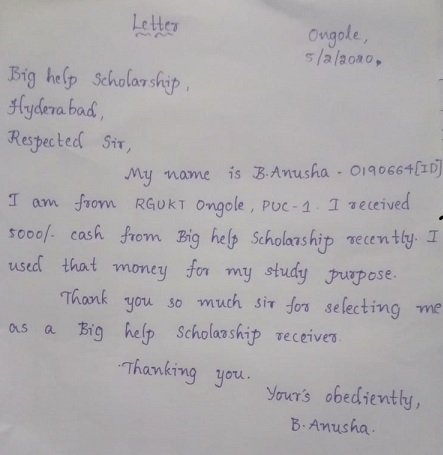 Letter
Ongole,
5/2/2020.
Big help Scholarship,
Hyderabad,
Respected Sir,
My name is B.Anusha - O190664[ID]
I am from RGUKT Ongole, PUC-1. I received
5000/- cash from Big help Scholarship recently. I
used that money for my study purpose.
Thank you so much sir for selecting me
as a Big help Scholarship receiver.
Thanking you.
Your's obediently,
B.Anusha.